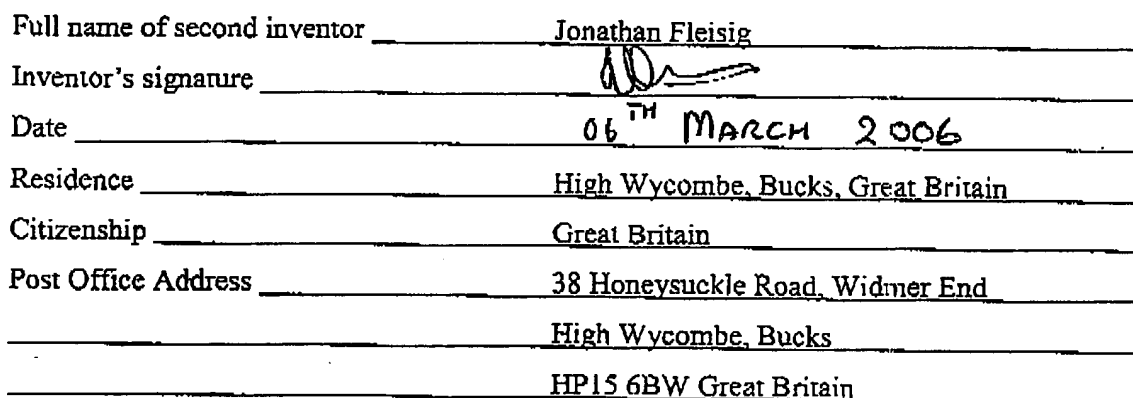 Full name of second inventor Jonathan Fleisig
Inventor's signature
Date 06TH MARCH 2006
Residence High Wycombe, Bucks, Great Britain
Citizenship Great Britain
Post Office Address 38 Honeysuckle Road, Widmer End
High Wycombe, Bucks
HP15 6BW Great Britain